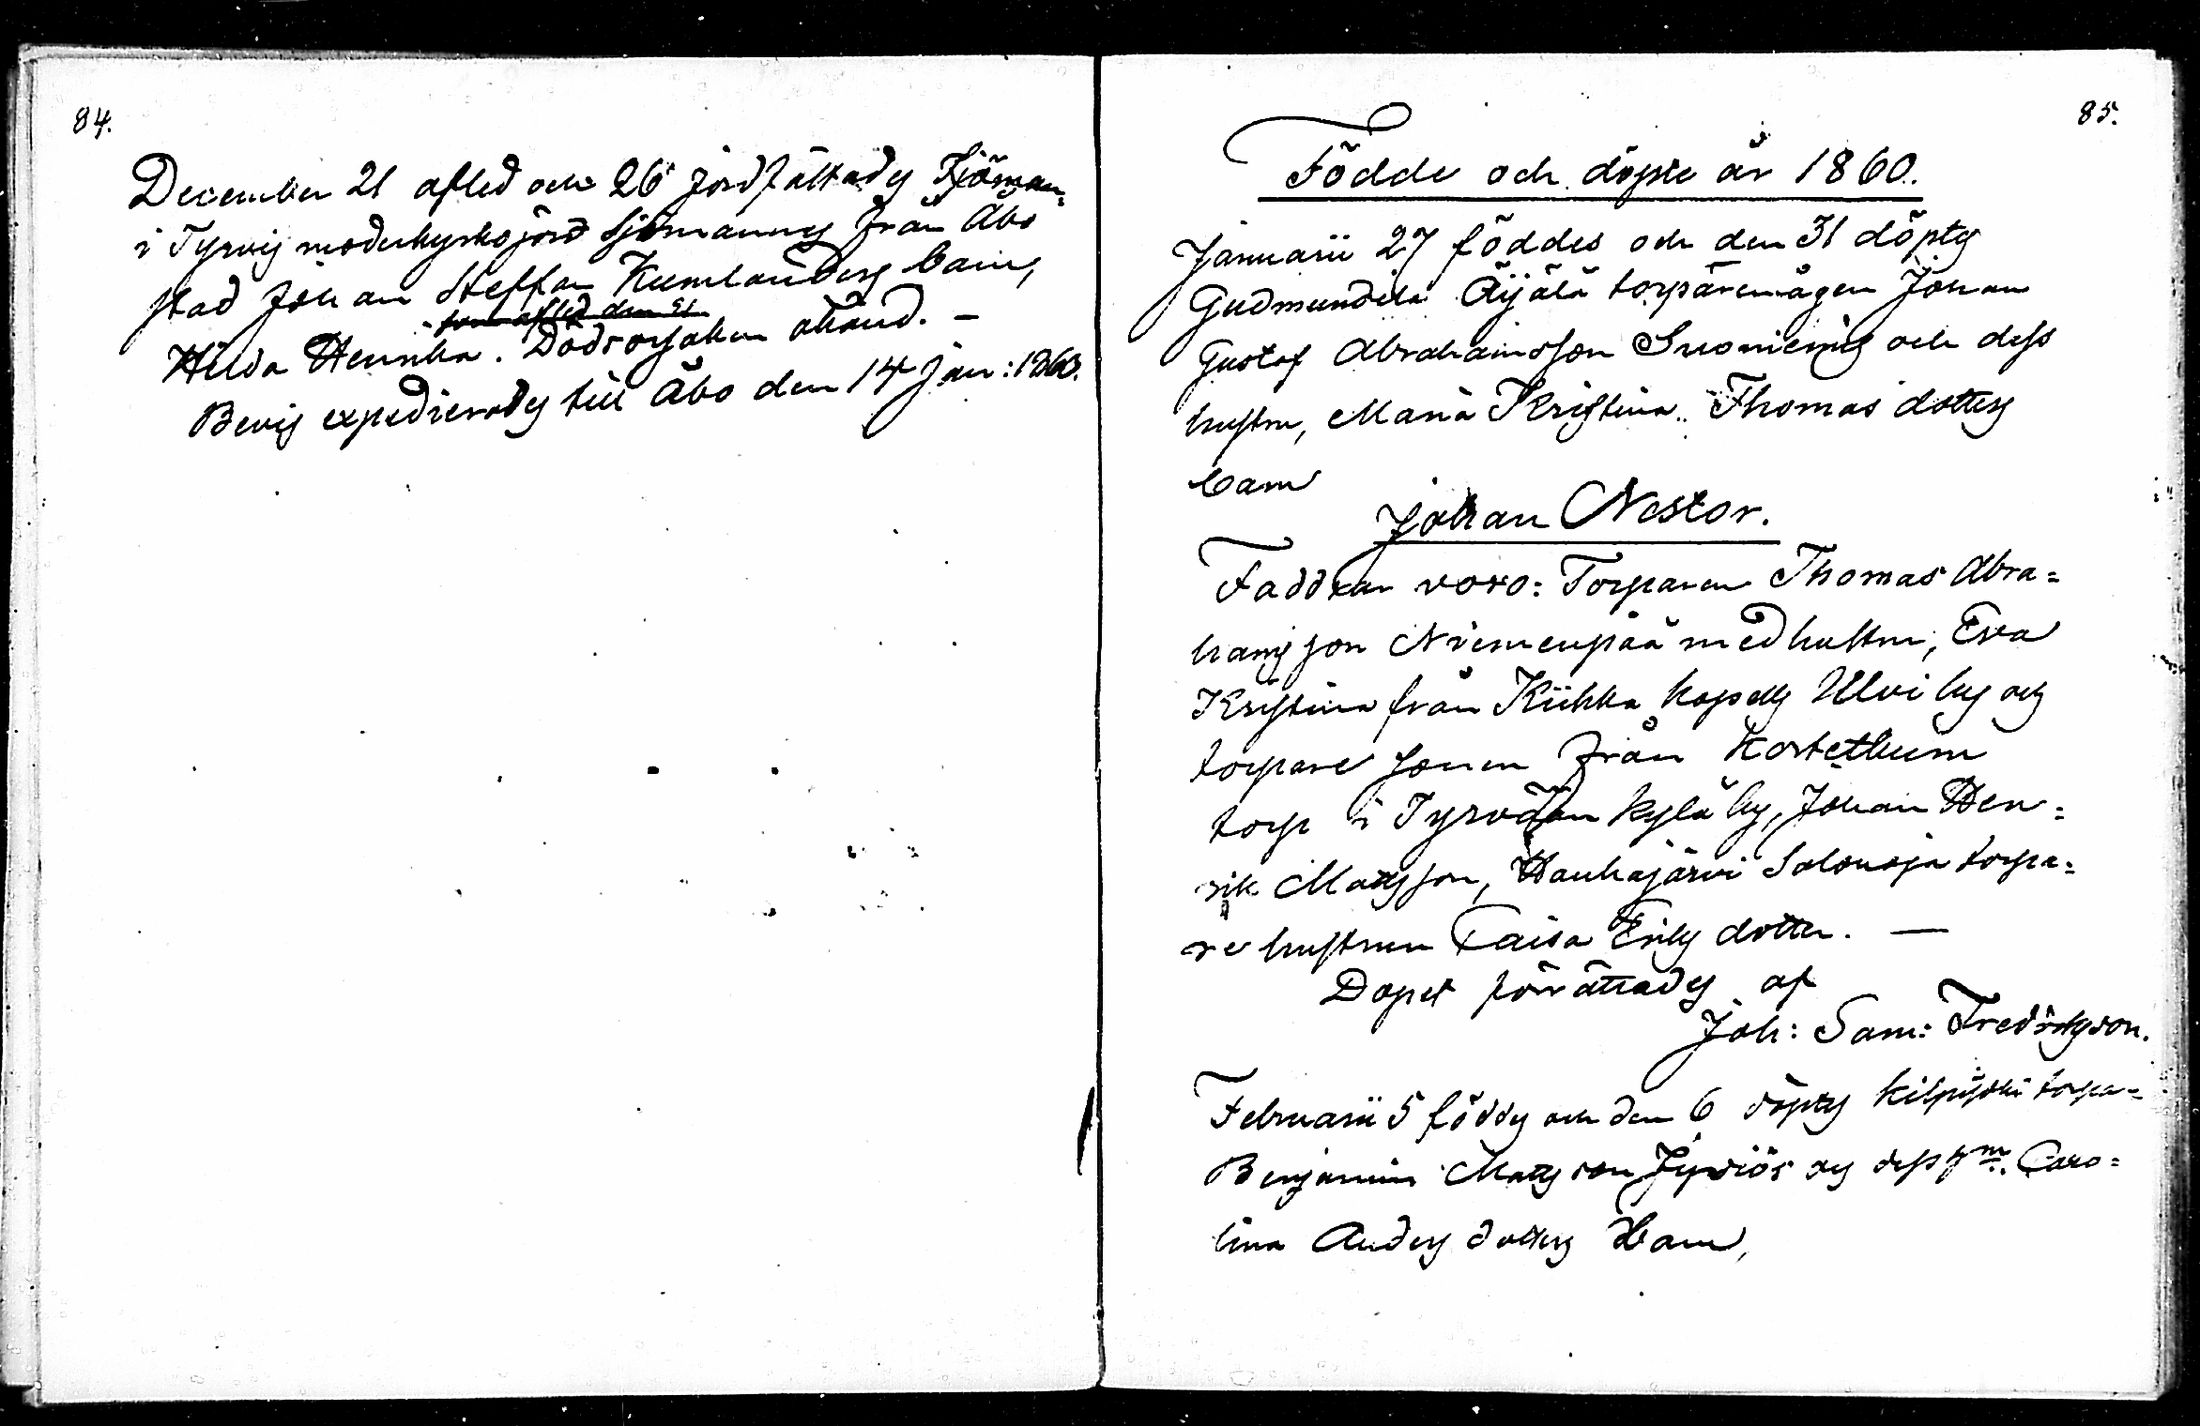 84.
December 21 afled och 26 jordfästades
i Tyrvis moderkyrkojord Sjömannens från Åbo
stad Johan Steffan Kumlanders barn,
som afled den 21
Hilda Henrika. Dödsorsaken okänd. —
Bevis expedierades till Åbo den 14 Jan: 1860.
85.
Födde och döpte år 1860.
Januarii 27 föddes och den 31 döptes
Gudmundila Äijälä torpäremågen Johan
Gustaf Abrahamsson Suominens och dess
hustru, Maria Kristina Thomas dotters
barn
Johan Nestor.
Faddrar voro: Torparen Thomas Abra=
hamsson Niemenpää med hustru, Eva
Kristina från Kiikka kapells Ulvi by och
torpare sonen från Kortethum
torp i Tyrvään kylä by, Johan Hen=
rik Matsson, Haukajärvi Salonoja torpa=
re hustrun Caisa Eriks dotter. —
Dopet förrättades af
Joh: Sam: Fredrikson.
Februarii 5 föddes och den 6 döptes torpa=
Benjamin Matsson och dess Caro=
lina Anders dotters barn,